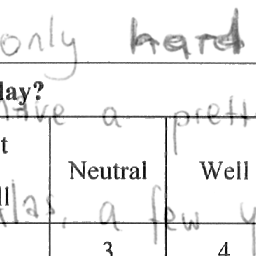 only hard
lay?
have a prett
t
Neutral Well
ll
las, a few y
3 4